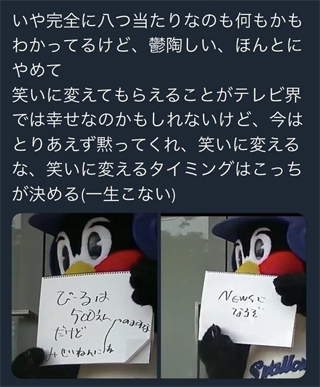 いや完全に八つ当たりなのも何もかも
わかってるけど、鬱陶しい、ほんとに
やめて
笑いに変えてもらえることがテレビ界
では幸せなのかもしれないけど、今は
とりあえず黙ってくれ、笑いに変える
な、笑いに変えるタイミングはこっち
が決める(一生こない)
びーるは
500えん
だけど
NEWSに
なるぞ
Swallows